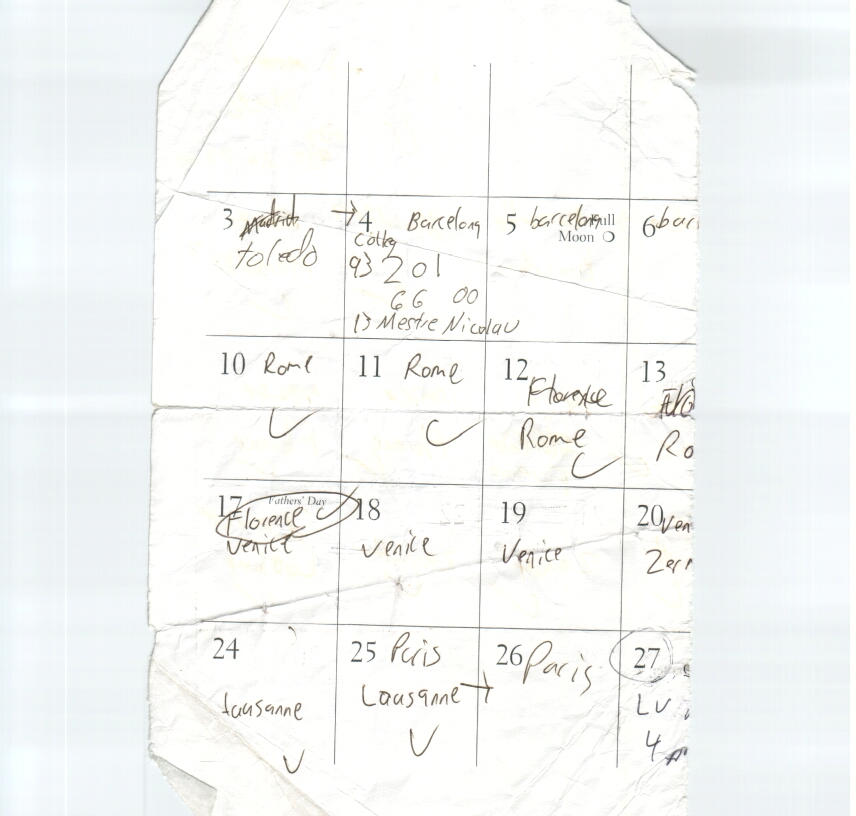 3 Madrid → 4 Barcelona 5 barcelona Full 6 bar
Moon
toledo
93 201
66 00
13 Mestre Nicolau
10 Rome 11 Rome 12 13
Florence
Rome Ro
17 Fathers' Day 18 19 20 Ven
Florence
Venice Venice Venice Zer
24 25 Paris 26 Paris 27
Lausanne Lausanne → LV
4